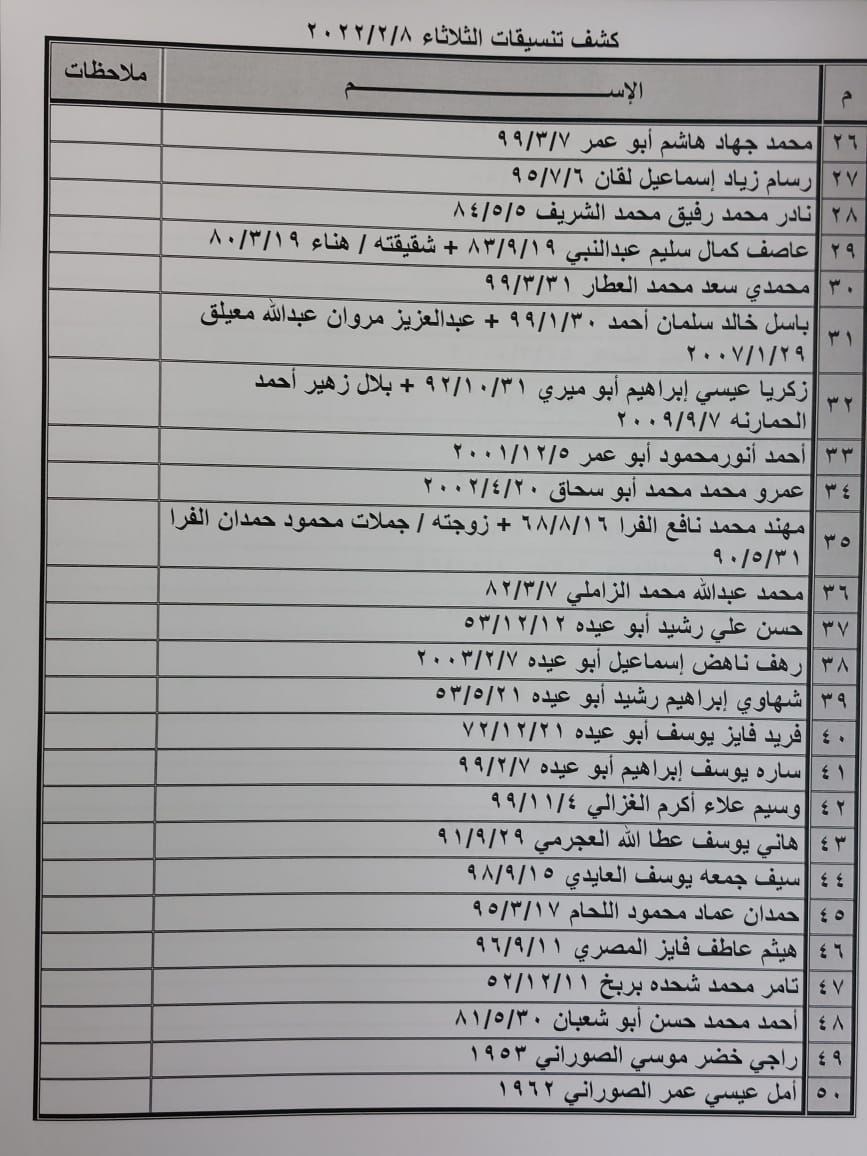 كشف تنسيقات الثلاثاء ٢٠٢٢/٢/٨
م الإســـــــم ملاحظات
٢٦ محمد جهاد هاشم أبو عمر ٩٩/٣/٧
٢٧ رسام زياد إسماعيل لقان ٩٥/٧/٦
٢٨ نادر محمد رفيق محمد الشريف ٨٤/٥/٥
٢٩ عاصف كمال سليم عبدالنبي ٨٣/٩/١٩ + شقيقته / هناء ٨٠/٣/١٩
٣٠ محمدي سعد محمد العطار ٩٩/٣/٣١
٣١ باسل خالد سلمان أحمد ٩٩/١/٣٠ + عبدالعزيز مروان عبدالله معيلق
٢٠٠٧/١/٢٩
٣٢ زكريا عيسي إبراهيم أبو ميري ٩٢/١٠/٣١ + بلال زهير أحمد
الحمارنه ٢٠٠٩/٩/٧
٣٣ أحمد أنورمحمود أبو عمر ٢٠٠١/١٢/٥
٣٤ عمرو محمد محمد أبو سحاق ٢٠٠٢/٤/٢٠
٣٥ مهند محمد نافع الفرا ٦٨/٨/١٦ + زوجته / جملات محمود حمدان الفرا
٩٠/٥/٣١
٣٦ محمد عبدالله محمد الزاملي ٨٢/٣/٧
٣٧ حسن علي رشيد أبو عيده ٥٣/١٢/١٢
٣٨ رهف ناهض إسماعيل أبو عيده ٢٠٠٣/٢/٧
٣٩ شهاوي إبراهيم رشيد أبو عيده ٥٣/٥/٢١
٤٠ فريد فايز يوسف أبو عيده ٧٢/١٢/٢١
٤١ ساره يوسف إبراهيم أبو عيده ٩٩/٢/٧
٤٢ وسيم علاء أكرم الغزالي ٩٩/١١/٤
٤٣ هاني يوسف عطا الله العجرمي ٩١/٩/٢٩
٤٤ سيف جمعه يوسف العايدي ٩٨/٩/١٥
٤٥ حمدان عماد محمود اللحام ٩٥/٣/١٧
٤٦ هيثم عاطف فايز المصري ٩٦/٩/١١
٤٧ تامر محمد شحده بربخ ٥٢/١٢/١١
٤٨ أحمد محمد حسن أبو شعبان ٨١/٥/٣٠
٤٩ راجي خضر موسي الصوراني ١٩٥٣
٥٠ أمل عيسي عمر الصوراني ١٩٦٢